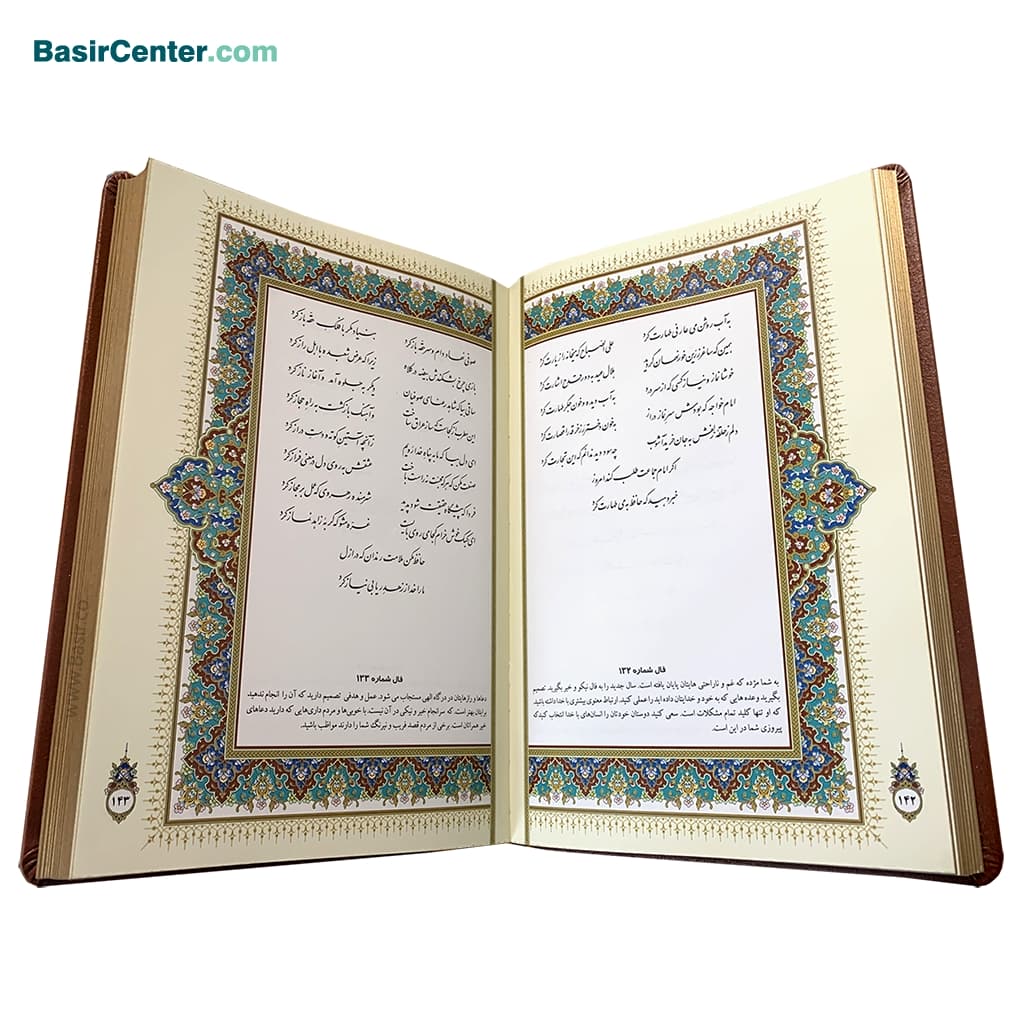 BasirCenter.com
به آب روشن می عارفی طهارت کرد
علی الصباح که میخانه را زیارت کرد
همین که ساغر زرین خور نهان گردید
هلال عید به دور قدح اشارت کرد
خوشا نماز و نیاز کسی که از سر درد
به آب دیده و خون جگر طهارت کرد
امام خواجه که بودش سر نماز دراز
به خون دختر رز خرقه را قصارت کرد
دلم ز حلقه زلفش به جان خرید آشوب
چه سود دید ندانم که این تجارت کرد
اگر امام جماعت طلب کند امروز
خبر دهید که حافظ به می طهارت کرد
فال شماره ۱۳۲
به شما مژده که غم و ناراحتی هایتان پایان یافته است. سال جدید را به فال نیکو و خیر بگیرید. تصمیم
بگیرید و وعده هایی که به خود و خدایتان داده اید را عملی کنید. ارتباط معنوی بیشتری با خدا داشته باشید
که او تنها کلید تمام مشکلات است. سعی کنید دوستان خودتان را انسان‌های با خدا انتخاب کنید که
پیروزی شما در این است.
۱۴۲
صوفی نهاد دام و سر حقه باز کرد
بنیاد مکر با فلک حقه باز کرد
بازی چرخ بشکندش بیضه در کلاه
زیرا که عرض شعبده با اهل راز کرد
ساقی بیا که شاهد رعنای صوفیان
دیگر به جلوه آمد و آغاز ناز کرد
این مطرب از کجاست که ساز عراق ساخت
و آهنگ بازگشت به راه حجاز کرد
ای دل بیا که ما به پناه خدا رویم
زآنچه آستین کوته و دست دراز کرد
صنعت مکن که هر که محبت نه راست باخت
عشقش به روی دل در معنی فراز کرد
فردا که پیشگاه حقیقت شود پدید
شرمنده رهروی که عمل بر مجاز کرد
ای کبک خوش خرام کجا می روی بایست
غره مشو که گربه زاهد نماز کرد
حافظ مکن ملامت رندان که در ازل
ما را خدا ز زهد ریا بی نیاز کرد
فال شماره ۱۳۳
دعاها و رازهایتان در درگاه الهی مستجاب می شود. عمل و هدفی تصمیم دارید که آن را انجام ندهید،
برایتان بهتر است. که سرانجام خیر و نیکی در آن نیست. با خوبی‌ها و مردم داری‌هایی که دارید دعاهای
خیر همراهتان است. برخی از مردم قصد فریب و نیرنگ شما را دارند مواظب باشید.
۱۴۳
www.Basir.co